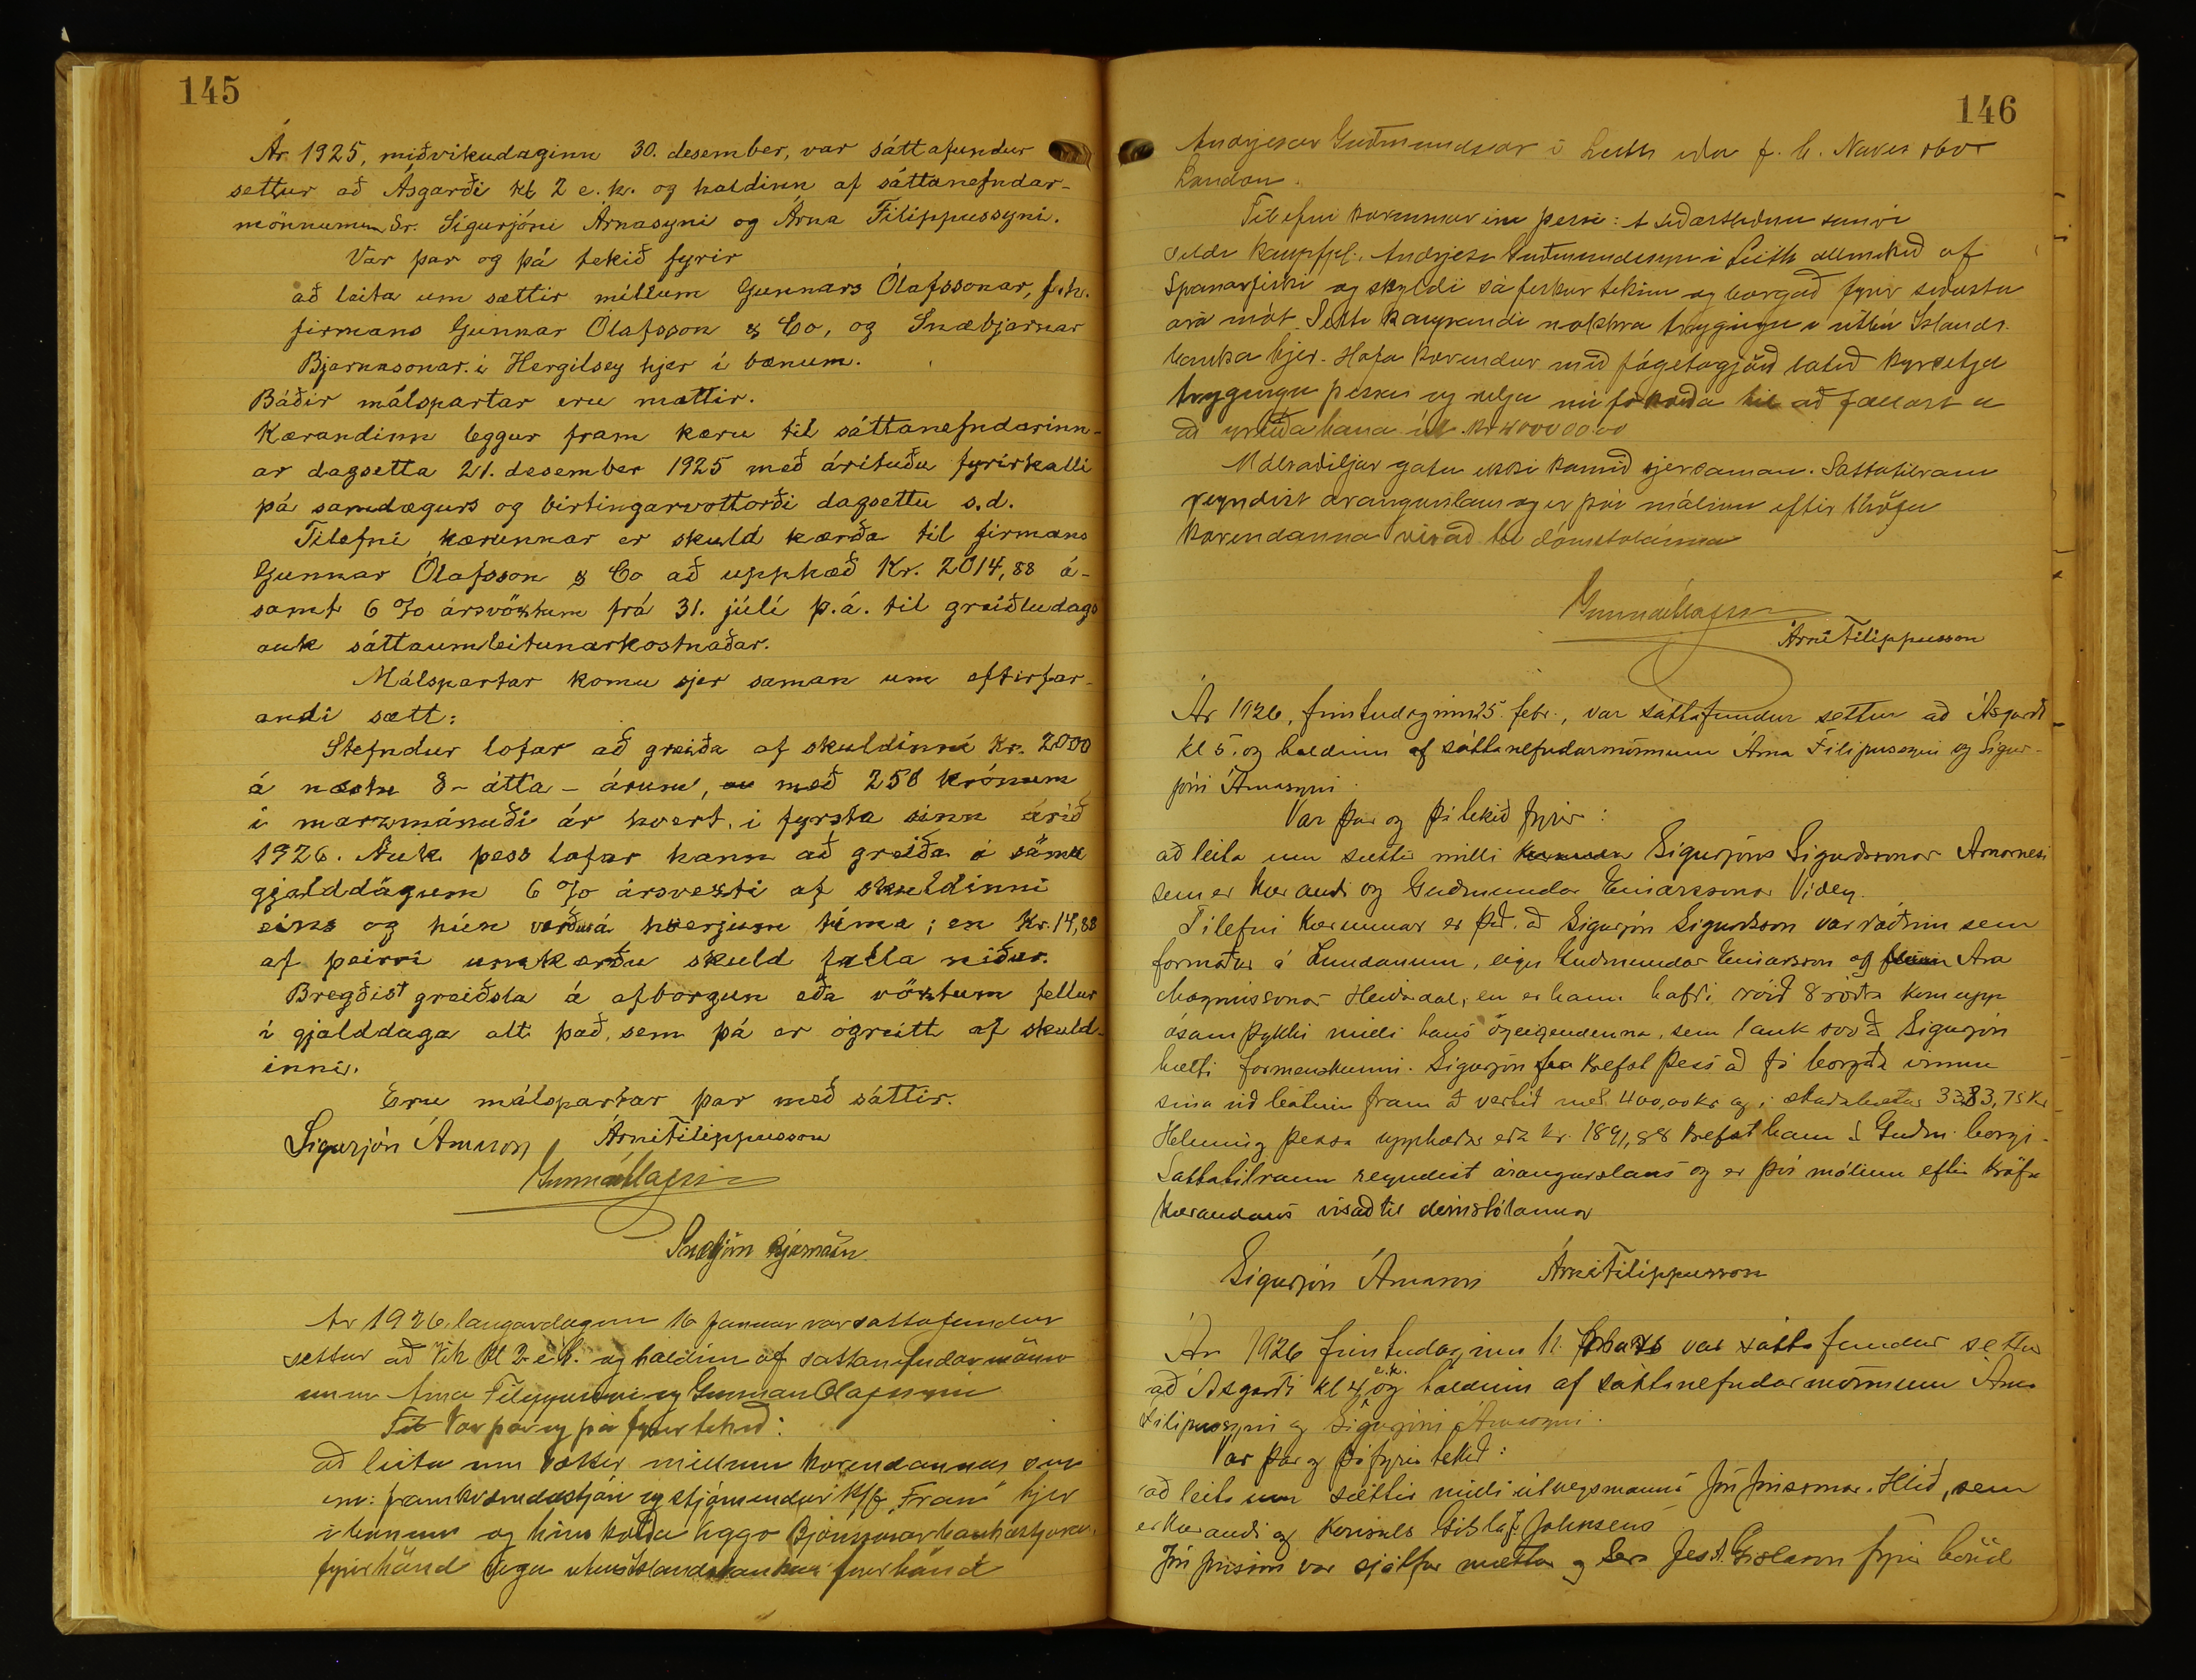 145
Ár 1925, miðvikudaginn 30. desember, var sáttafundur
settur að Ásgarði kl 2 e.h. og haldinn af sáttanefndar-
mönnunum Sr. Sigurjóni Árnasyni og Árna Filippussyni.
Var þar og þá tekið fyrir
að leita um sættir millum Gunnars Ólafssonar, f.h.
firmans Gunnar Ólafsson & Co, og Snæbjarnar
Bjarnasonar í Hergilsey hjer í bænum.
Báðir málspartar eru mættir.
Kærandinn leggur fram kæru til sáttanefndarinn-
ar dagsetta 21. desember 1925 með árituðu fyrirkalli
þá samdægurs og birtingarvottorði dagsettu s.d.
Tilefni kærunnar er skuld kærða til firmans
Gunnar Ólafsson & Co að upphæð Kr. 2014,88 á-
samt 6 % ársvöxtum frá 31. júlí þ.á. til greiðsludags
auk sáttaumleitunarkostnaðar.
Málspartar komu sjer saman um eftirfar-
andi sætt:
Stefndur lofar að greiða af skuldinni Kr. 2000
á næstu 8 - átta - árum, með 250 krónum
í marzmánuði ár hvert, í fyrsta sinn árið
1926. Auk þess lofar hann að greiða á sömu
gjalddögum 6 % ársvexti af skuldinni
eins og hún verður á hverjum tíma; en Kr. 14,88
af þeirri umkærðu skuld falla niður.
Bregðist greiðsla á afborgun eða vöxtum fellur
í gjalddaga alt það, sem þá er ógreitt af skuld-
inni.
Eru málspartar þar með sáttir.
Sigurjón Árnason Árni Filippusson
Gunnar Ólafsson
Snæbjörn Bjarnason
Ár 1926 laugardaginn 16 januar var sattafundur
settur að Vík kl 2 e.h. og haldinn af sattanefndarmönn-
unum Árna Filippussyni og Gunnari Olafssyni
Var þar og þá fyrir tekið:
að leita um sættir millum kærendanna sem
eru: framkvæmdastjóri og stjórnendur h/f "Fram" hjer
í bænum og hins kærða Viggo Björnssonar bankastjóra
fyrir hönd utbus Islandsbanka fyrir hönd
146
Andrjesar Guðmundssonar í Leith eða f. C.
London.
Tilefni kærunnar er þessi: Á síðastliðnu sumri
seldi kaupfjel. Andrjesi Guðmundssyni í Leith allmikið af
Spanarfiski og skyldi sá fiskur tekinn og borgað fyrir síðustu
ára mót. Setti kaupandi nokkra tryggingu í útbú Islands-
banka hjer. Hafa kærendur með fógetagjörð látið kyrsetja
tryggingu þessa og vilja nú fá kærða til að fallast á
að greiða hana út.
Málsaðiljar gátu ekki komið sjer saman. Sattatilraun
reyndist arangurslaus og er því málinu eftir kröfu
kærendanna vísað til dómstólanna
Gunnar Ólafsson
Árni Filippusson
Ár 1926, fimtudaginn 25. febr., var sáttafundur settur að Ásgarði
kl 5. og haldinn af sáttanefndarmönnum Árna Filipussyni og Sigur-
jóni Árnasyni.
Var þar og þá tekið fyrir:
að leita um sættir milli Sigurjóns Sigurðssonar Arnarnesi
sem er kærandi og Guðmundar Einarssonar Viðey.
Tilefni kærunnar er það, að Sigurjón Sigurðsson var ráðinn sem
formaður á Lundanum, eign Guðmundar Einarssonar og Ara
Magnússonar Heiðardal, en er hann hafði róið 8 róðra kom upp
ósamþykki milli hans og eigendanna, sem lauk svo að Sigurjón
hætti formenskunni. Sigurjón krefst þess að fá borgaða vinnu
sína við bátinn fram að vertíð með 400,00 kr og í skaðabætur 3383,75 kr
Helming þessa upphæðar eða kr. 1891,88 krefst hann að Guðm. borgi.
Sattatilraun reyndist árangurslaus og er því málinu eftir kröfu
kærandans vísað til dómstólanna
Sigurjón Árnason Árni Filippusson
Ár 1926 fimtudaginn 11. var sáttafundur settur
að Ásgarði kl 4 e.h. og haldinn af sáttanefndarmönnum Árna
Filipussyni og Sigurjóni Árnasyni.
Var þar og þá fyrir tekið:
að leita um sættir milli útvegsmanns Jóns Jónssonar, Hlíð, sem
er kærandi og Konsuls Gísla J. Johnsens
Jón Jónsson var sjálfur mættur og Jes A. Gíslason fyrir hönd